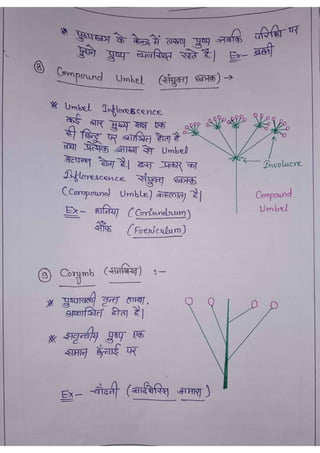 * पुष्पछत्र के केन्द्र में तरुण पुष्प जबकि परिधि पर
पुराने पुष्प व्यवस्थित रहते हैं। Ex-
⑧ Compound Umbel (संयुक्त छत्रक) →
* Umbel Inflorescence
कई बार मुख्य अक्ष एक
ही बिन्दु पर शाखित होता है
तथा प्रत्येक शाखा से Umbel
उत्पन्न होता है। इस प्रकार का
Inflorescence संयुक्त छत्रक
(Compound Umble) कहलाता है।
Ex- धनिया (Coriandrum)
सौंफ (Foericulum)
Involucre
Compound
Umbel
⑨ Corymb (समशिख) :-
* पुष्पावली वृन्त लम्बा,
अशाखित होता है।
* सवृन्तीय पुष्प एक
समान ऊँचाई पर
Ex- चाँदनी